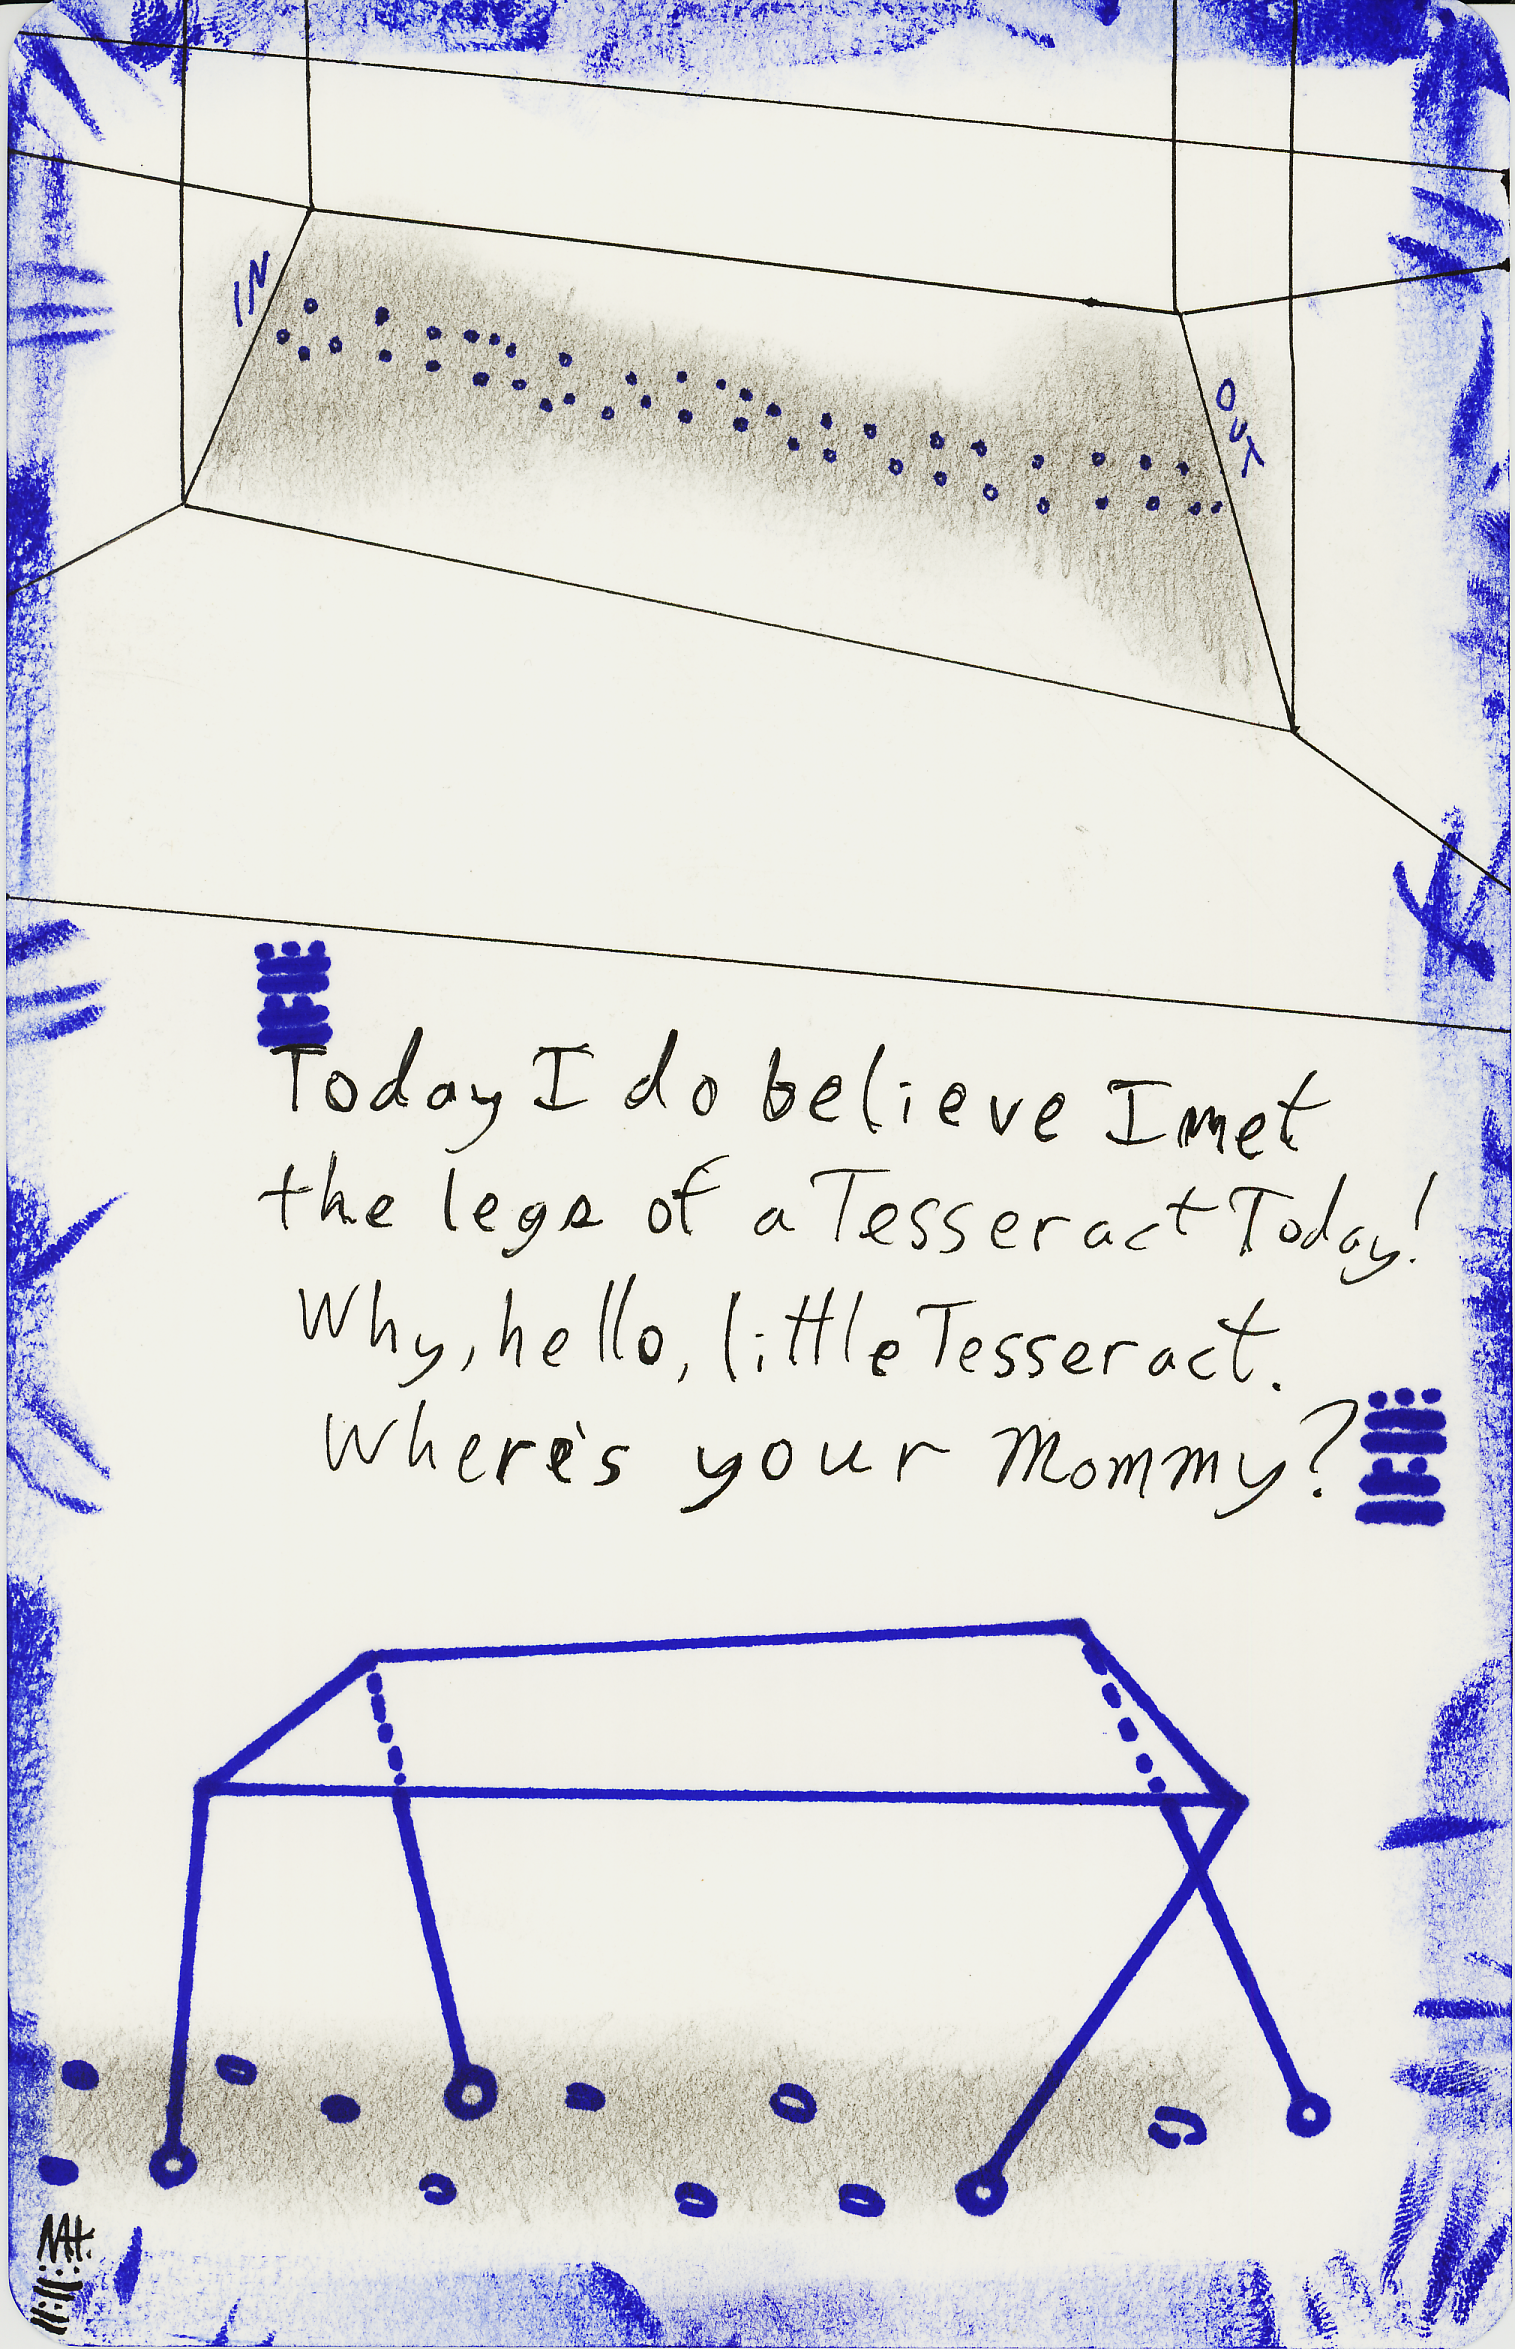 IN
OUT
Today I do believe I met
the legs of a Tesseract Today!
Why, hello, little Tesseract.
Where's your Mommy?